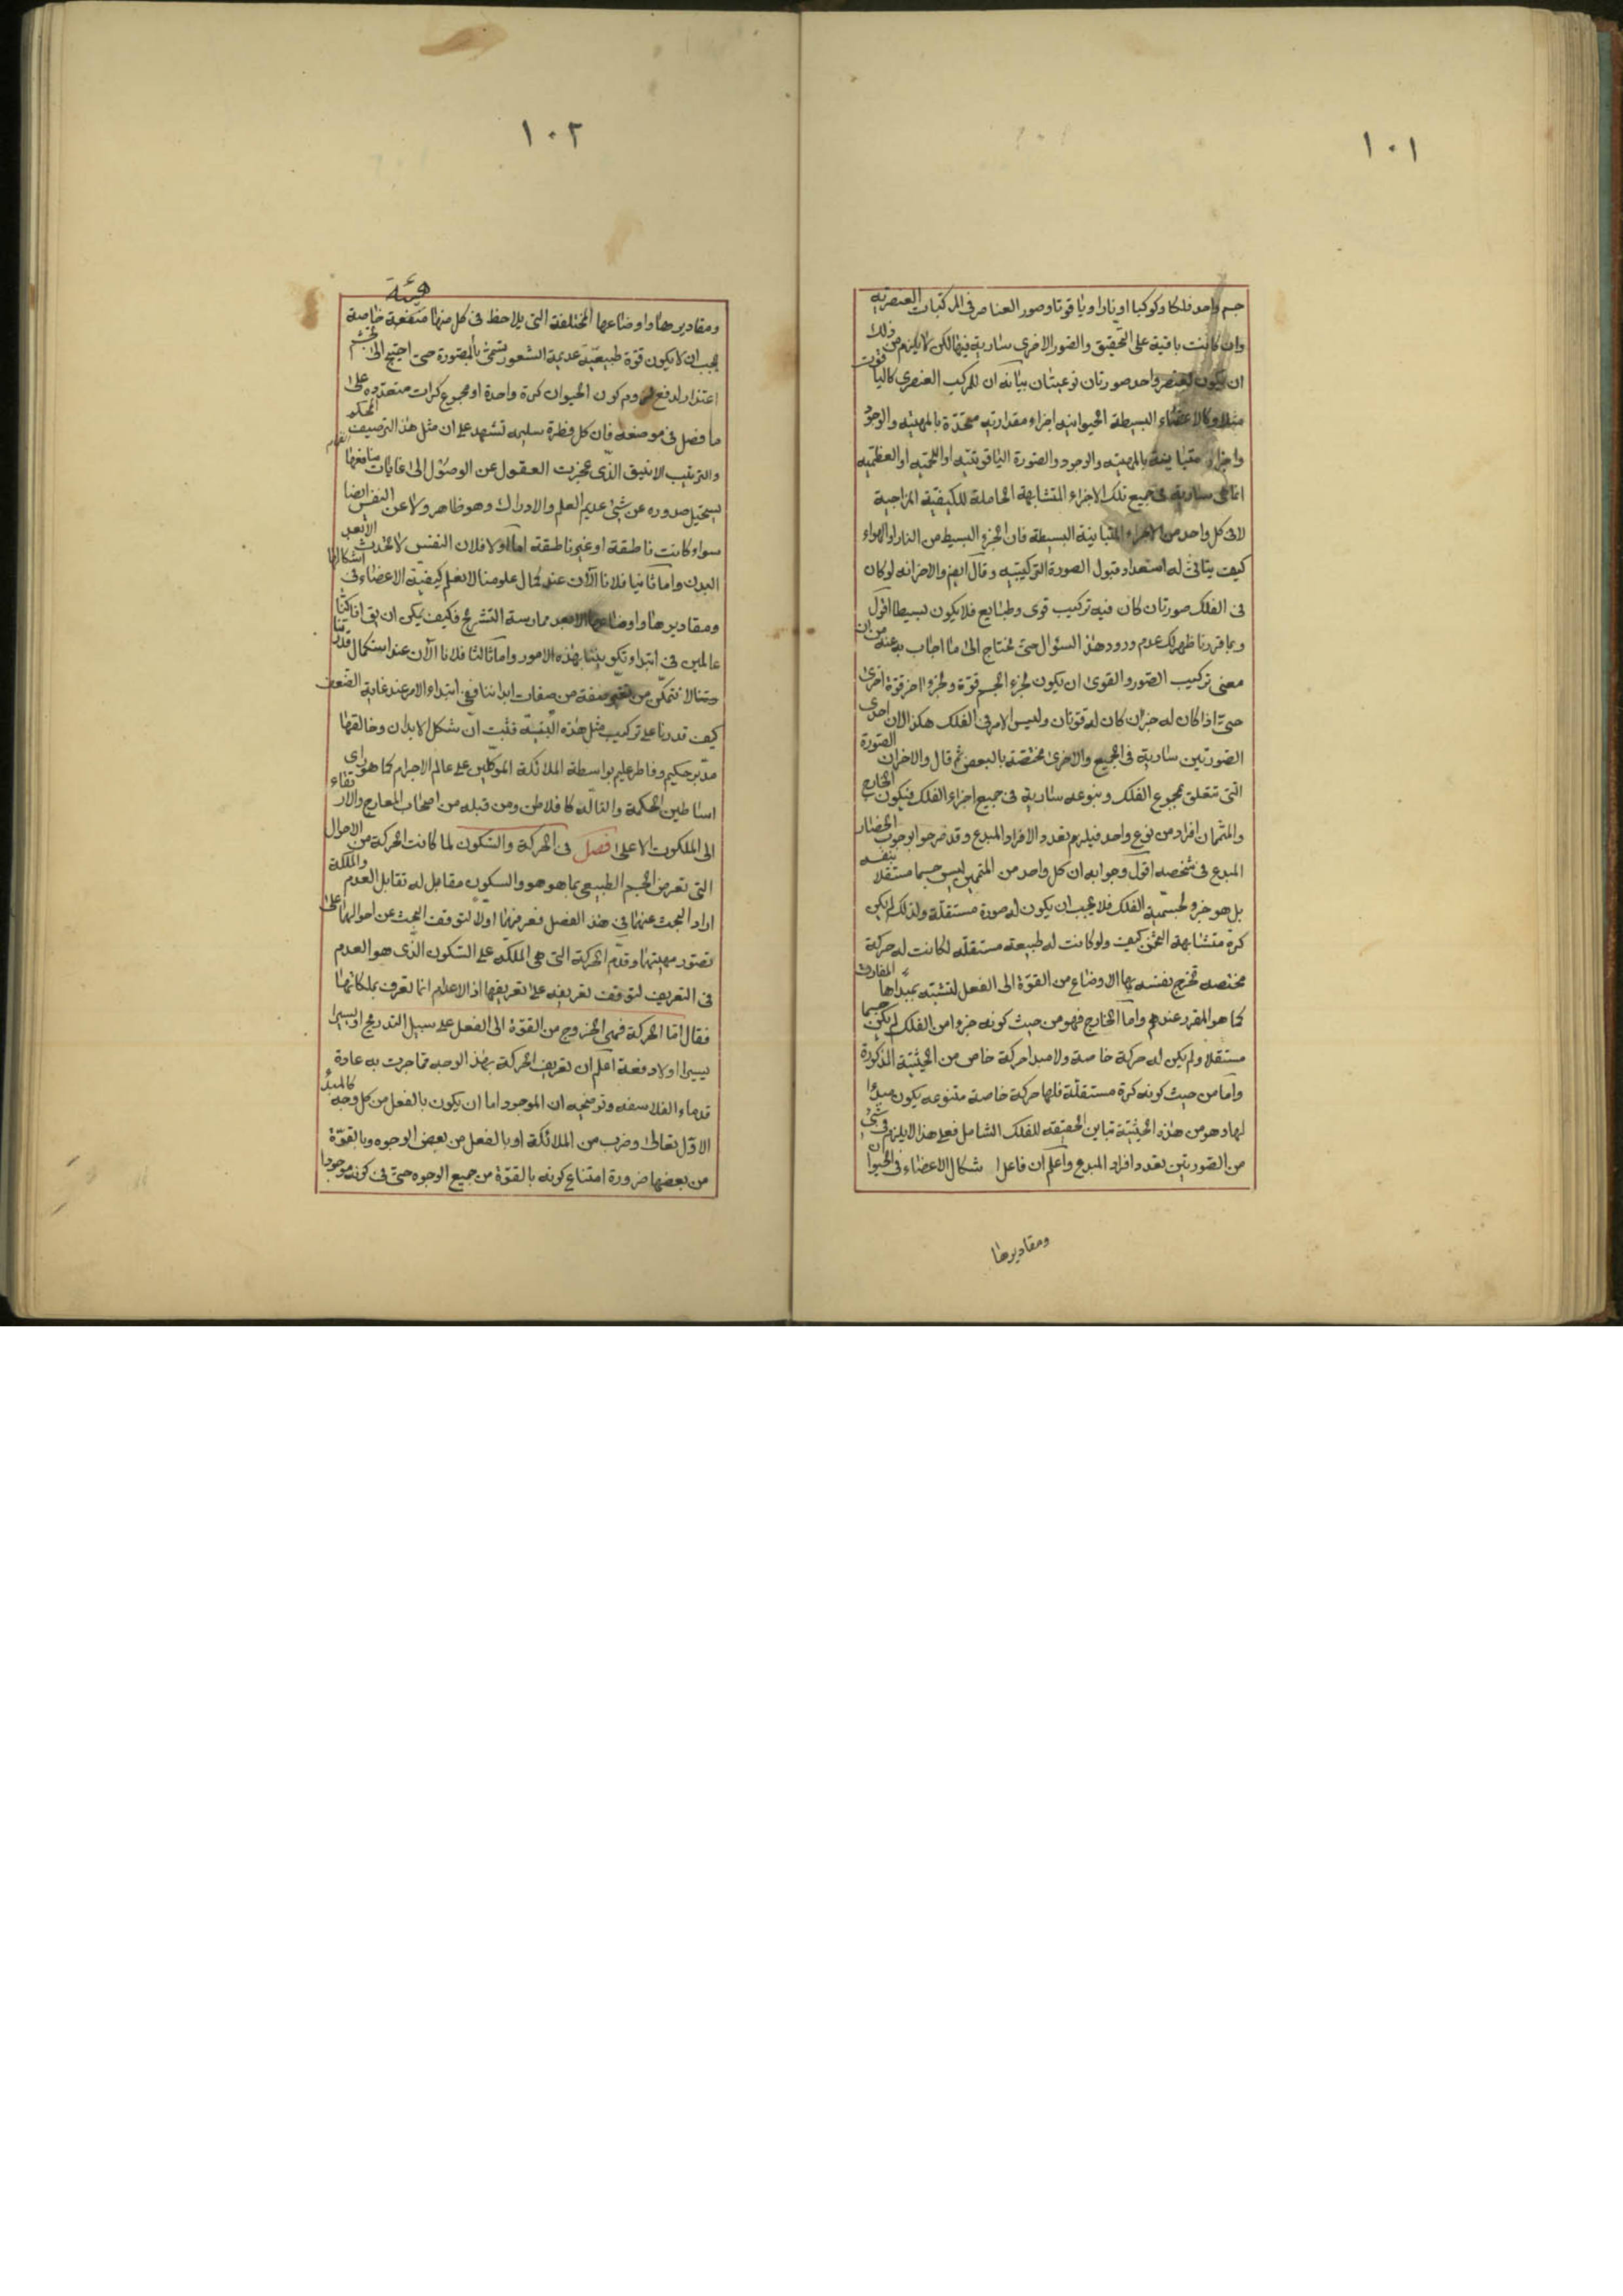 ١٠١
جسم واحد فلكا وكوكبا او نارا وياقوتا وصور العناصر فى المركبات العنصريه
وان كانت باقية على التحقيق والصور الاخرى سارية فيها لكن لا يلزم من ذلك
ان يكون لعنصر واحد صورتان نوعيتان بيانه ان للمركب العنصرى كالياقوت
مثلا وكالاعضاء البسيطة الحيوانيه اجزاء مقداريه متحدة بالمهيته والوجود
واجزاء متباينة بالمهيته والوجود والصورة الياقوتيه او اللحميه او العظميه
انما هى سارية فى جميع تلك الاجزاء المتشابهة الحاملة للكيفية المزاجية
لا فى كل واحد من الاجزاء المتباينة البسيطة فان الجزء البسيط من النار او الهواء
كيف يتأتى له استعداد قبول الصورة التركيبيه وقال ايضا والاخر انه لو كان
فى الفلك صورتان كان فيه تركيب قوى وطبايع فلا يكون بسيطا اقول
وبما قررنا ظهر لك عدم ورود هذا السئوال حتى نحتاج الى ما اجاب به عنه من ان
معنى تركيب الصور والقوى ان يكون لجزء الجسم قوة ولجزء اخر قوة اخرى
حتى اذا كان له جزءان كان له قوتان وليس الامر فى الفلك هكذا لان احدى
الصورتين سارية فى الجميع والاخرى مختصة بالبعض ثم قال والاخر ان الصورة
التى تتعلق بمجموع الفلك وبنوعه سارية فى جميع اجزاء الفلك فيكون الخارج
والمتممان افراد من نوع واحد فيلزم تعدد الافراد المبدع وقد صرحوا بوجوب انحصار
المبدع فى شخصه اقول وجوابه ان كل واحد من المتممين ليس جسما مستقلا بنفسه
بل هو جزء لجسمية الفلك فلا يجب ان يكون له صورة مستقلة ولذلك لم يكن
كرة متشابهة الثخن كيف ولو كانت له طبيعة مستقله لكانت له حركة
مختصه تخرج نفسه بها الاوضاع من القوة الى الفعل لتشبه بمبدأها المفارق
كما هو المقرر عندهم واما الخارج فهو من حيث كونه جزءا من الفلك لم يكن جسما
مستقلا ولم يكن له حركة خاصة ولا مبدا حركة خاص من الحيثية المذكورة
واما من حيث كونه كرة مستقلة فلها حركة خاصة متنوعه يكون مبدءا
لها وهو من هذه الحيثية تباين الحقيقه للفلك الشامل فعلى هذا لا يلزم فى شئ
من الصورتين تعدد افراد المبدع واعلم ان فاعل اشكال الاعضاء فى الحيوان
ومقاديرها
١٠٢
هيئة
ومقاديرها واوضاعها المختلفة التى يلاحظ فى كل منها منفعة خاصة
يجب ان لا يكون قوة طبيعية عديمة الشعور تسمى بالمصورة حتى احتيج الى تجشم
اعتذار لدفع لزوم كون الحيوان كرة واحدة او مجموع كرات متعدده على
ما فصل فى موضعه فان كل فطرة سليمه تشهد على ان مثل هذا الترصيف المحكم
والترتيب الانيق الذى عجزت العقول عن الوصول الى غايات منافعها
يستحيل صدوره عن شئ عديم العلم والادراك وهو ظاهر ولا عن النفس ايضا
سواء كانت ناطقة او غير ناطقة اما اولا فلان النفس لا تحدث الا بعد
البدن واما ثانيا فلانا الآن عند كمال علومنا لا نعلم كيفية الاعضاء فى اشكالها
ومقاديرها واوضاعها الا بعد ممارسة التشريح فكيف يمكن ان يق انا كنا
عالمين فى ابتداء تكويننا بهذه الامور واما ثالثا فلانا الآن عند استكمال قدرتنا
لا نتمكن من تغير صفة من صفات ابداننا ففى ابتداء الامر عند غاية الضعف
كيف قدرنا على تركيب مثل هذه البنية فثبت ان شكل الابدان وخالقها
مدبر حكيم وفاطر عليم بواسطة الملائكة الموكلين على عالم الاجرام كما هو راى
اساطين الحكمة والتاله كافلاطن ومن قبله من اصحاب المعارج والارتقاء
الى الملكوت الاعلى فصل فى الحركة والسكون لما كانت الحركة من الاحوال
التى تعرض الجسم الطبيعى بما هو هو والسكون مقابل له تقابل العدم والملكة
اراد البحث عنهما فى هذا الفصل فعرفهما اولا لتوقف البحث عن احوالهما على
تصور مهيتهما وقدم الحركة التى هى الملكه على السكون الذى هو العدم
فى التعريف لتوقف تعريفه على تعريفها اذ الاعدام انما تعرف بملكاتها
فقال اما الحركة فهى الخروج من القوة الى الفعل على سبيل التدريج او يسيرا
يسيرا او لا دفعة اعلم ان تعريف الحركة بهذا الوجه مما جرت به عادة
قدماء الفلاسفه وتوضحيه ان الموجود اما ان يكون بالفعل من كل وجه كالمبدء
الاول تعالى وضرب من الملائكة او بالفعل من بعض الوجوه وبالقوة
من بعضها ضرورة امتناع كونه بالقوة من جميع الوجوه حتى فى كونه موجودا